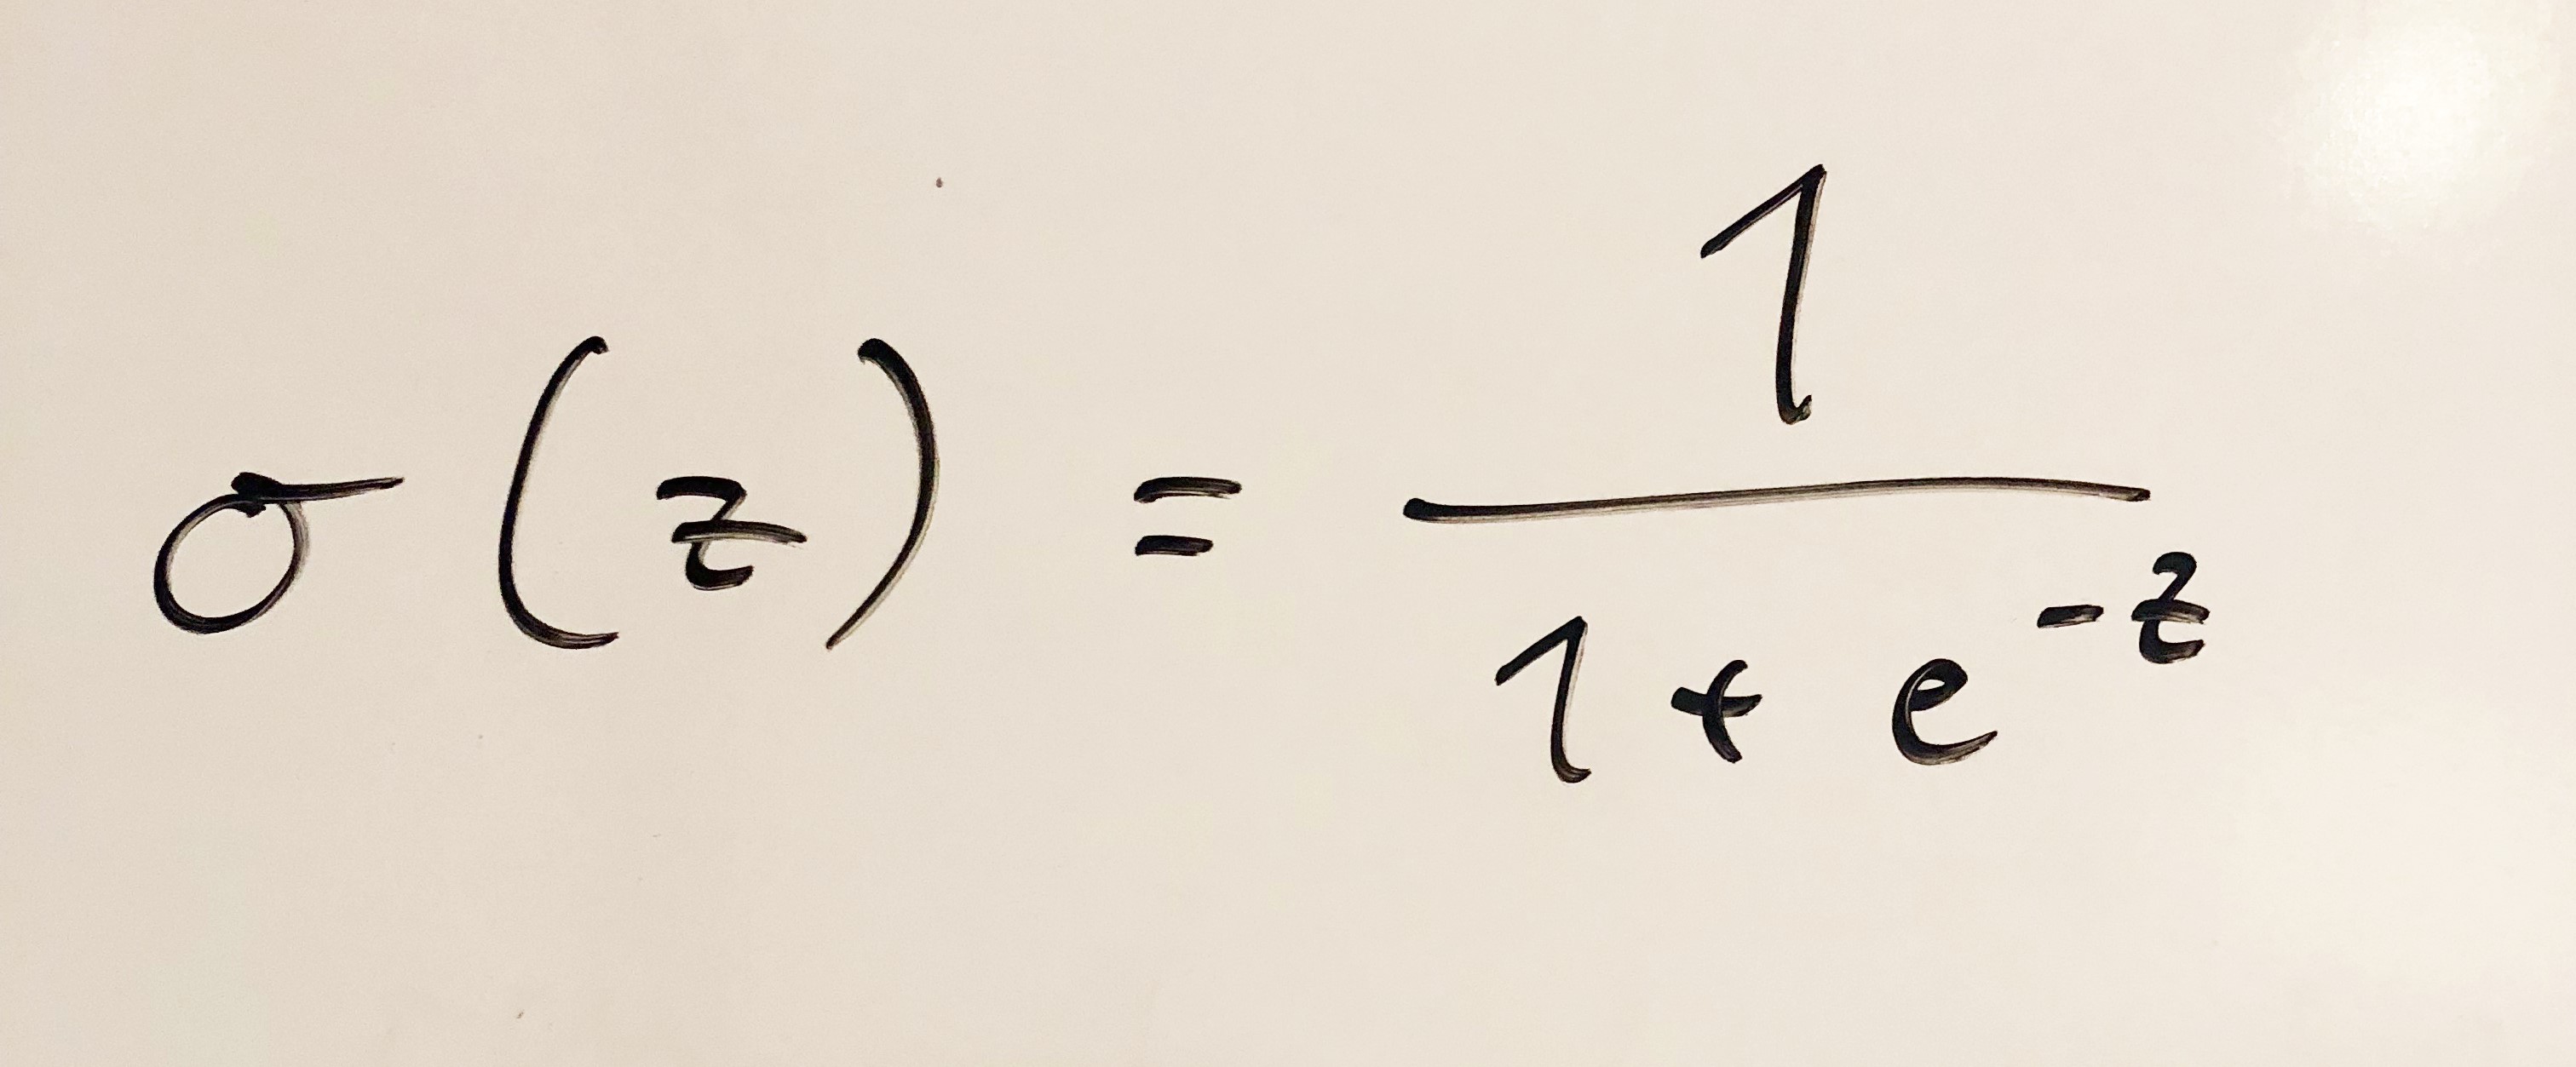 σ(z) = 1 / (1 + e^{-z})